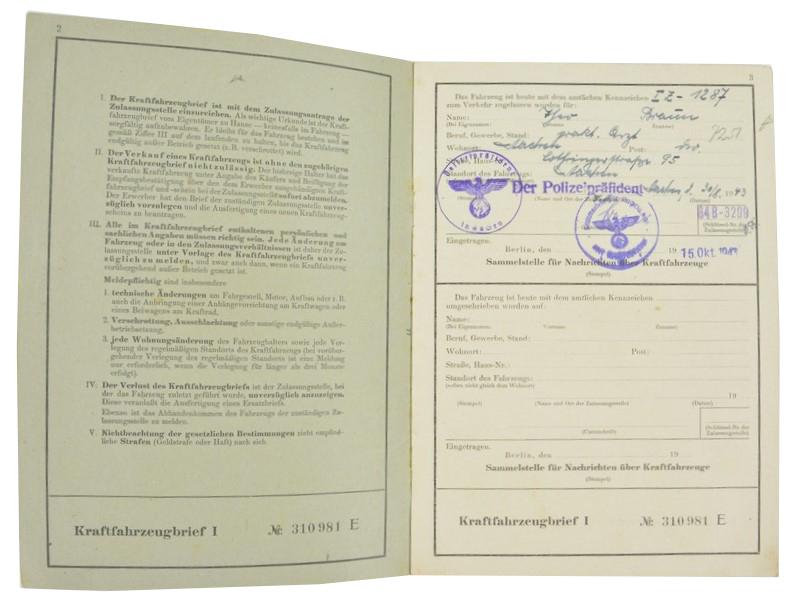 2
I. Der Kraftfahrzeugbrief ist mit dem Zulassungsantrage der
Zulassungsstelle einzureichen. Als wichtige Urkunde ist der Kraft-
fahrzeugbrief vom Eigentümer zu Hause — keinesfalls im Fahrzeug —
sorgfältig aufzubewahren. Er bleibt für das Fahrzeug bestehen und ist
gemäß Ziffer III auf dem laufenden zu halten, bis das Kraftfahrzeug
endgültig außer Betrieb gesetzt ist (z. B. verschrottet) wird.
II. Der Verkauf eines Kraftfahrzeugs ist ohne den zugehörigen
Kraftfahrzeugbrief nicht zulässig. Der bisherige Halter hat das
verkaufte Kraftfahrzeug unter Angabe des Käufers und Beifügung der
Empfangsbestätigung über den dem Erwerber ausgehändigten Kraft-
fahrzeugbrief und -schein bei der Zulassungsstelle sofort abzumelden.
Der Erwerber hat den Brief der zuständigen Zulassungsstelle unver-
züglich vorzulegen und die Ausfertigung eines neuen Kraftfahrzeug-
scheins zu beantragen.
III. Alle im Kraftfahrzeugbrief enthaltenen persönlichen und
sachlichen Angaben müssen richtig sein. Jede Änderung am
Fahrzeug oder in den Zulassungsverhältnissen ist daher der Zu-
lassungsstelle unter Vorlage des Kraftfahrzeugbriefs unver-
züglich zu melden, und zwar auch dann, wenn ein Kraftfahrzeug
vorübergehend außer Betrieb gesetzt ist.
Meldepflichtig sind insbesondere
1. technische Änderungen am Fahrgestell, Motor, Aufbau oder z. B.
auch die Anbringung einer Anhängevorrichtung am Kraftwagen oder
eines Beiwagens am Kraftrad,
2. Verschrottung, Ausschlachtung oder sonstige endgültige Außer-
betriebsetzung,
3. jede Wohnungsänderung des Fahrzeughalters sowie jede Ver-
legung des regelmäßigen Standorts des Kraftfahrzeugs (bei vorüber-
gehender Verlegung des regelmäßigen Standorts ist eine Meldung
nur erforderlich, wenn die Verlegung für länger als drei Monate
erfolgt).
IV. Der Verlust des Kraftfahrzeugbriefs ist der Zulassungsstelle, bei
der das Fahrzeug zuletzt geführt wurde, unverzüglich anzuzeigen.
Diese veranlaßt die Ausfertigung eines Ersatzbriefs.
Ebenso ist das Abhandenkommen des Fahrzeugs der zuständigen Zu-
lassungsstelle zu melden.
V. Nichtbeachtung der gesetzlichen Bestimmungen zieht empfind-
liche Strafen (Geldstrafe oder Haft) nach sich.
Kraftfahrzeugbrief I № 310981 E
3
Das Fahrzeug ist heute mit dem amtlichen Kennzeichen IZ-1287
zum Verkehr zugelassen worden für:
Name: Braun
(Bei Eigennamen: Vorname Zuname)
Beruf, Gewerbe, Stand: prakt. Arzt
Wohnort: Aachen Post:
Lothringerstraße 95
Standort des Fahrzeugs: Aachen
Der Polizeipräsident 1943
(Name und Ort der Zulassungsstelle) (Datum)
04B-3200
(Schlüssel-Nr. der
Zulassungsstelle)
Eingetragen. Berlin, den 19 15. Okt. 1943
Sammelstelle für Nachrichten über Kraftfahrzeuge
(Stempel)
Das Fahrzeug ist heute mit dem amtlichen Kennzeichen
umgeschrieben worden auf:
Name:
(Bei Eigennamen: Vorname Zuname)
Beruf, Gewerbe, Stand:
Wohnort: Post:
Straße, Haus-Nr.:
Standort des Fahrzeugs:
(sofern nicht gleich dem Wohnort)
19
(Stempel) (Name und Ort der Zulassungsstelle) (Datum)
(Unterschrift) (Schlüssel-Nr. der
Zulassungsstelle)
Eingetragen. Berlin, den 19
Sammelstelle für Nachrichten über Kraftfahrzeuge
(Stempel)
Kraftfahrzeugbrief I № 310981 E